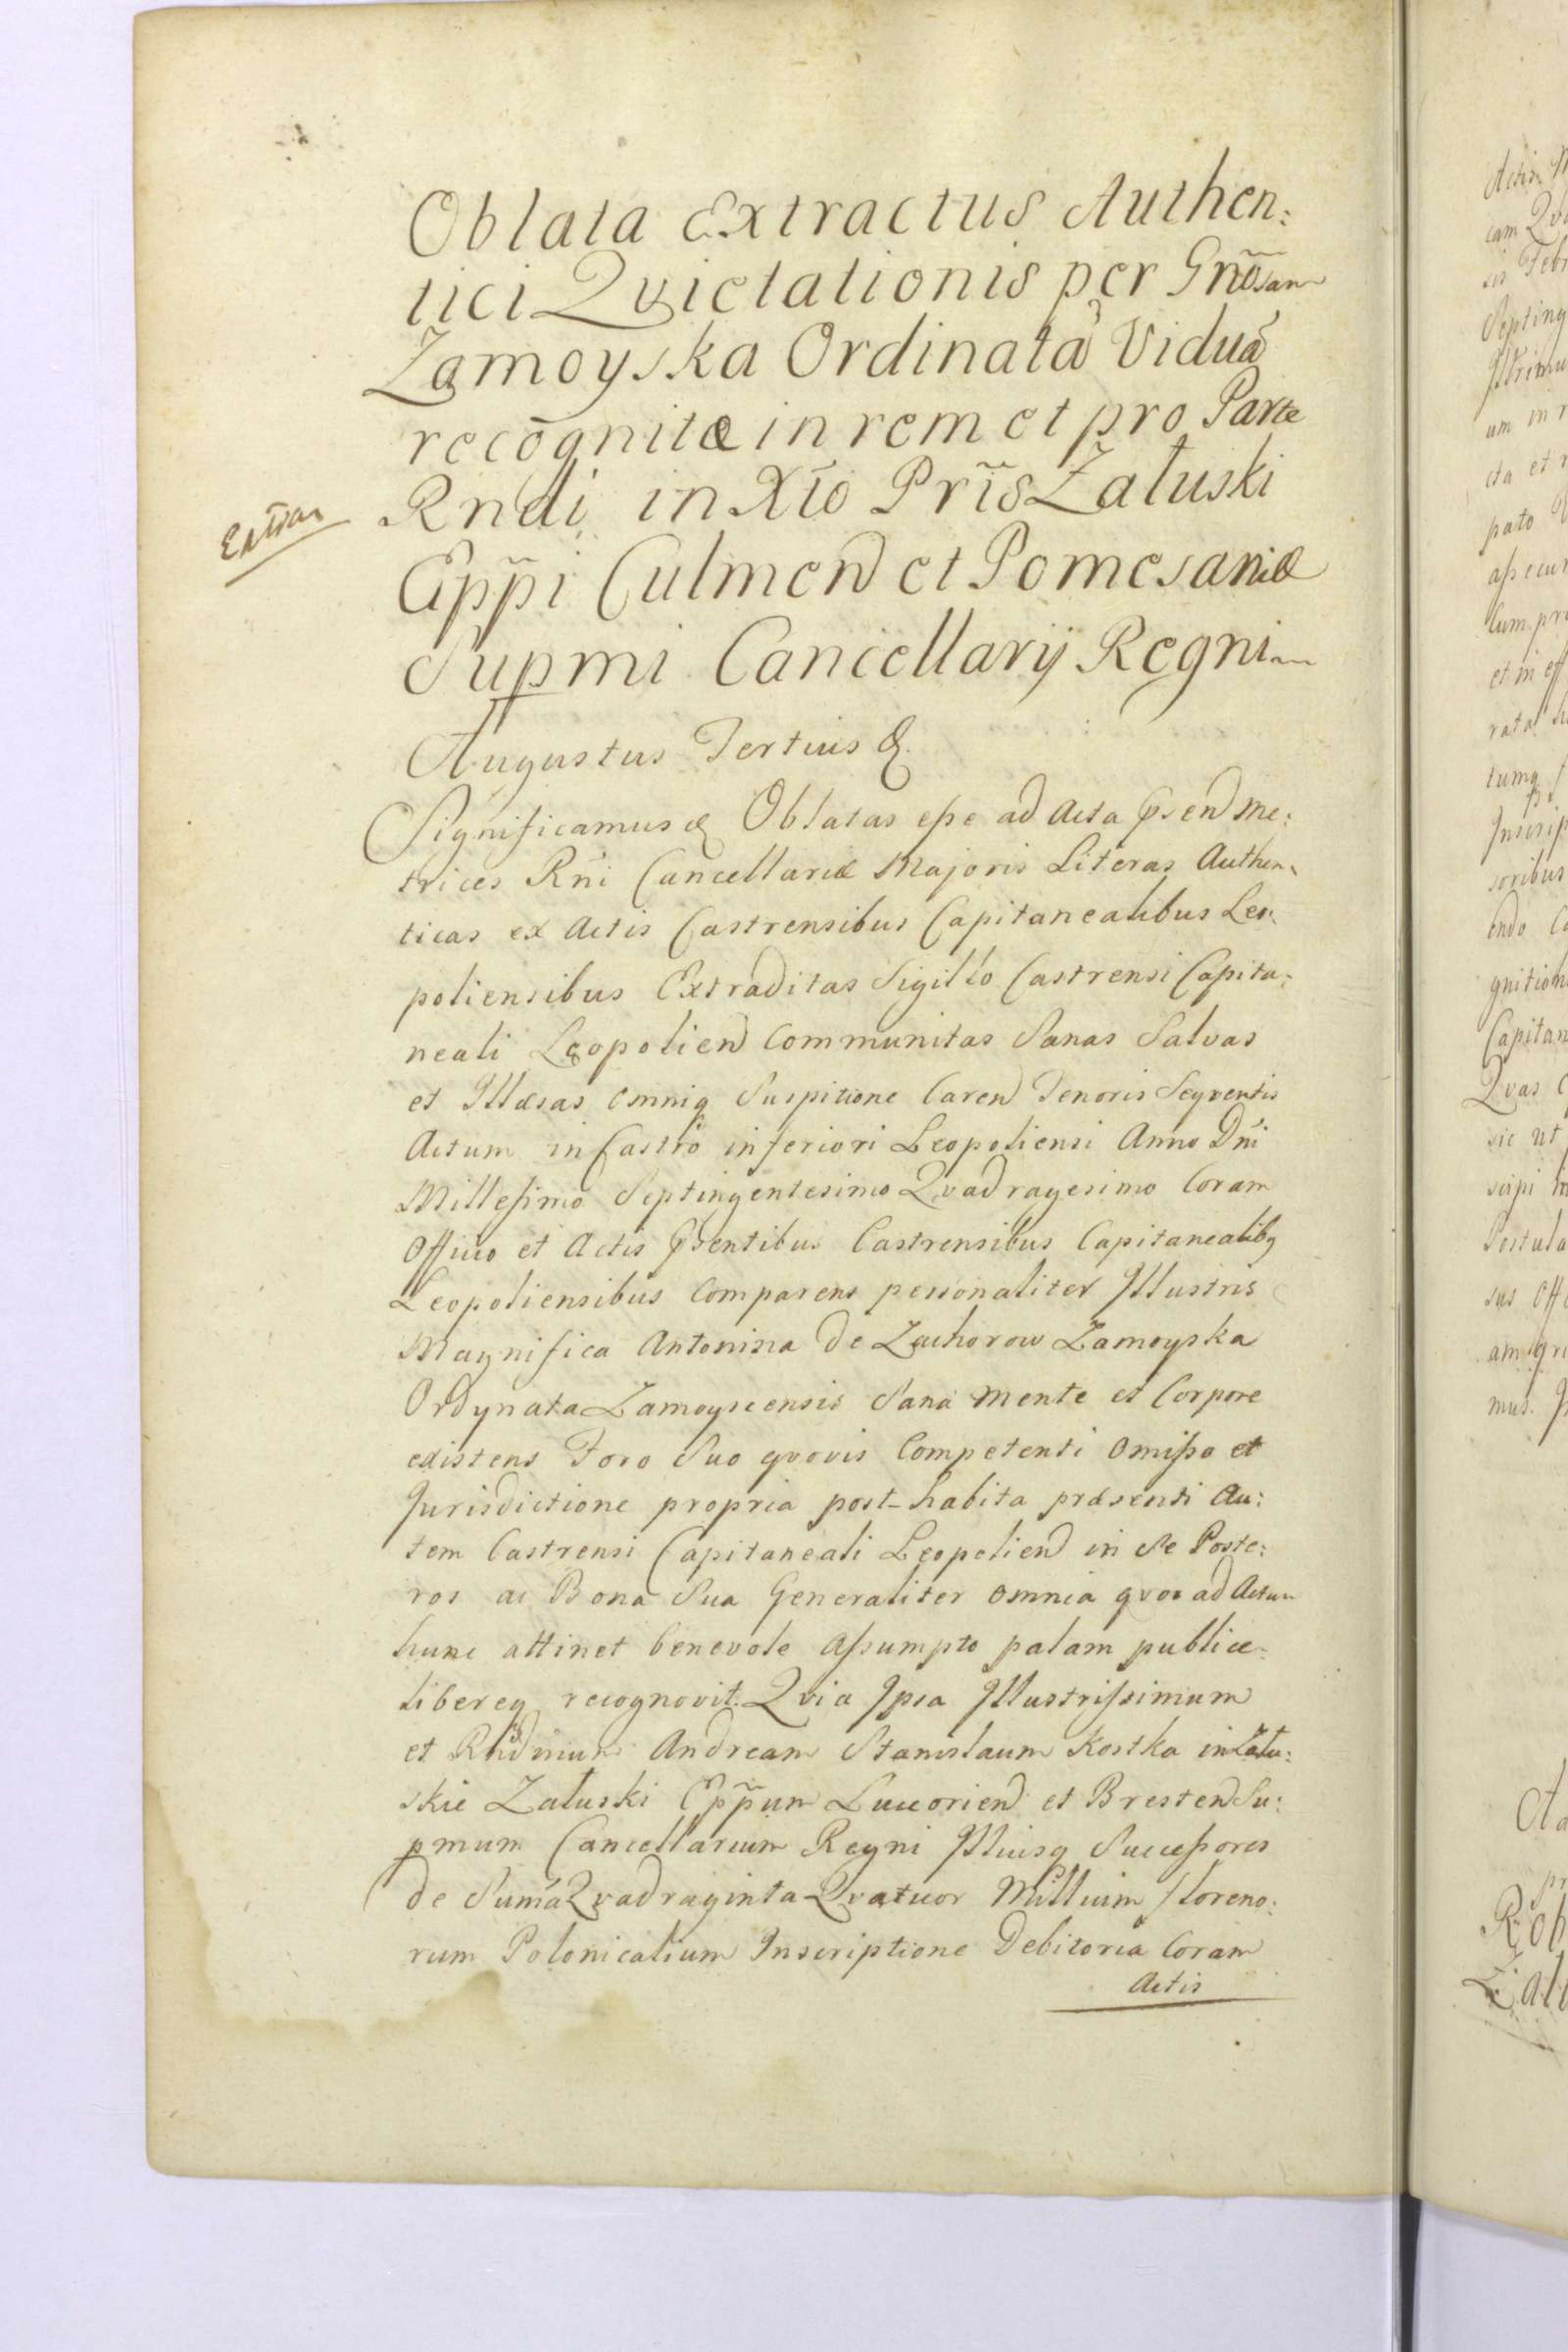 Oblata Extractus Authen:
tici Qvietationis per Gnõsam
Zamoyska Ordinatã Viduã
recõgnitæ in rem et pro Parte
Rndi in Xto Pris Załuski
Eppi Culmen et Pomesaniæ
Supmi Cancellarij Regni
Extran
Augustus Tertius &
Significamus & Oblatas esse ad Acta psen Me:
trices Rni Cancellariæ Majoris Literas Authen:
ticas ex Actis Castrensibus Capitanealibus Leo:
poliensibus Extraditas Sigillo Castrensi Capita:
neali Leopolien Communitas Sanas Salvas
et Illæsas Omniq Suspitione Caren Tenoris Seqventis
Actum in Castro inferiori Leopoliensi Anno Dni
Millesimo Septingentesimo Qvadragesimo Coram
Officio et Actis psentibus Castrensibus Capitanealibq
Leopoliensibus Comparens personaliter Illustris
Magnifica Antonina de Zachorow Zamoyska
Ordynata Zamoyscensis Sana Mente et Corpore
existens Foro Suo qvovis Competenti Omisso et
Jurisdictione propria post-habita præsenti Au:
tem Castrensi Capitaneali Leopolien in Se Poste:
ros ac Bona Sua Generaliter Omnia qvoa ad Actum
hunc attinet benevole Assumpto palam publice
libereq recognovit. Qvia Ipsa Illustrissimum
et Rndmum Andream Stanislaum Kostka in Zału:
skie Załuski Eppum Luceorien et Bresten Su:
pmum Cancellarium Regni Illiusq Successores
de Suma Qvadraginta Qvatuor Millium Floreno:
rum Polonicalium Inscriptione Debitoria Coram
Actis